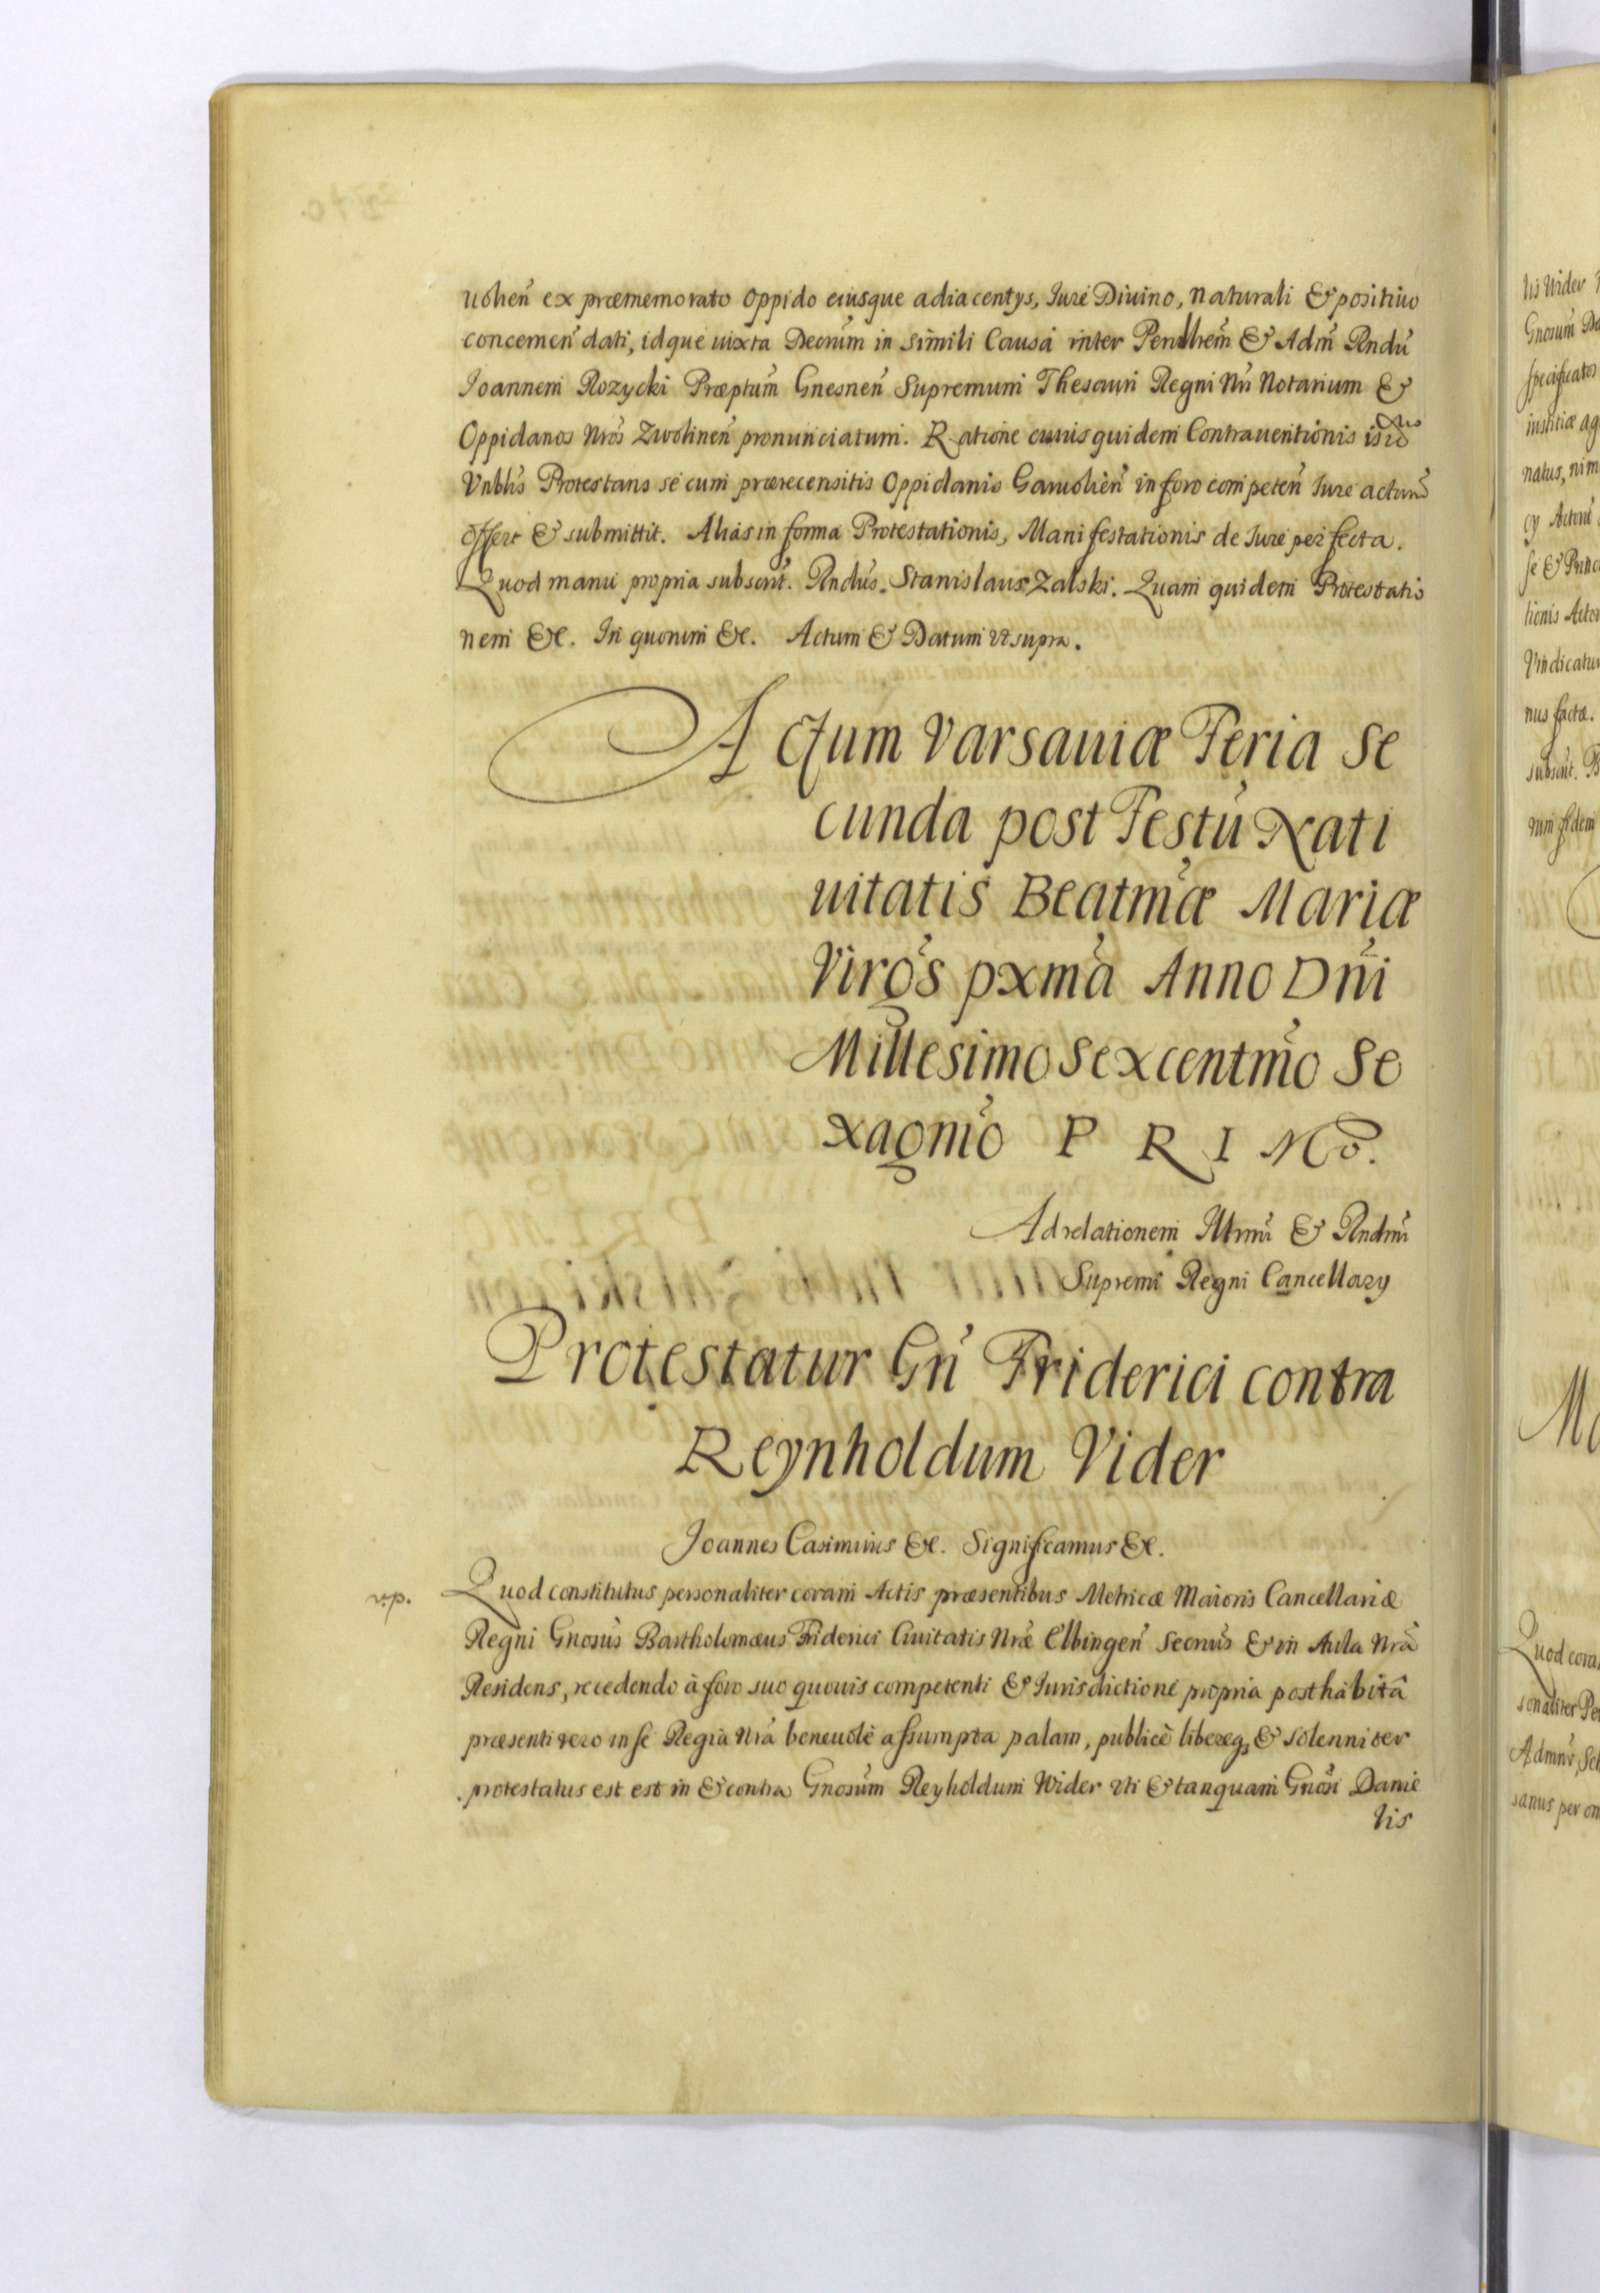 uolień ex præmemorato oppido eiusque adiacentys, Iure Diuino, naturali & positiuo
concernen̄ dati, idque iuxta Decrum̄ in simili Causa inter Perillrem̄ & Adm̄ Rndu̇
Ioannem Rozycki Præptum̄ Gnesnen̄ Supremum Thesauri Regni Nr̄i Notarium &
Oppidanos Nros̄ Zwolinen̄ pronunciatum. Ratione cuius quidem Contrauentionis
Vnblis̄ Protestans se cum præcensitis Oppidanis Garuolien̄ in foro competen̄ Iure acturu̇
offert & submittit. Alias in forma Protestationis, Manifestationis de Iure perfecta.
Quod manu propria subscrit̄. Rndus̄. Stanislaus Zalski. Quam quidem Protestatio
nem &c. In quorum &c. Actum & Datum ut supra.
Actum Varsauiæ Feria Se
cunda post Festu̇ Nati
uitatis Beatmǣ Mariæ
Virgs̄ pxma̅ Anno Dn̄i
Millesimo Sexcentmo̅ Se
xagmo̅ P R I Mo.
Ad relationem Illrmi̅ & Rndmi̅
Supremi Regni Cancellary
Protestatur Gn̄ Friderici contra
Reynholdum Vider
Joannes Casimirus &c. Significamus &c.
Quod constitutus personaliter coram Actis præsentibus Metricæ Maioris Cancellariæ
Regni Gnosus̄ Bartholomæus Friderici Ciuitatis Nrǣ Elbingen̄ Secrius̄ & in Aula Nrā
Residens, recedendo à foro suo quouis competenti & Iurisdictione propria posthabitâ
præsenti vero in se Regia Nrā beneuolè assumpta palam, publicè libereq, & solenniter
protestatus est est in & contra Gnosum̄ Reyholdum Wider uti & tanquam Gnosi̅ Danie
lis